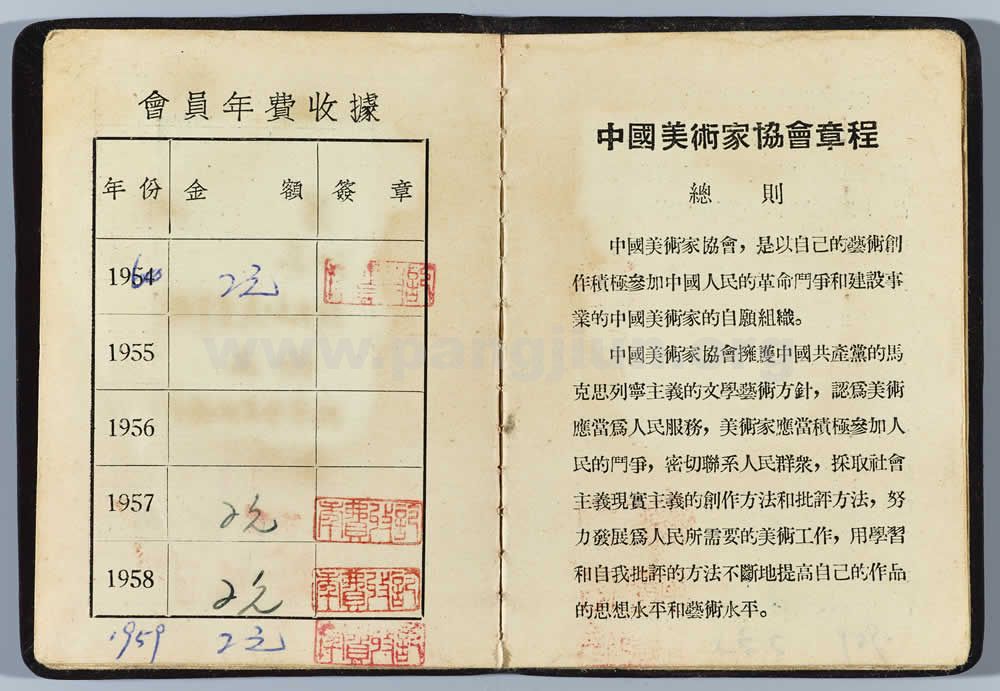 會員年費收據
年份 金額 簽章
1954 2元
1955
1956
1957 2元 年費收訖
1958 2元 年費收訖
1959 2元 年費收訖
中國美術家協會章程
總則
中國美術家協會,是以自己的藝術創
作積極參加中國人民的革命鬥爭和建設事
業的中國美術家的自願組織。
中國美術家協會擁護中國共產黨的馬
克思列寧主義的文學藝術方針,認爲美術
應當爲人民服務,美術家應當積極參加人
民的鬥爭,密切聯系人民群衆,採取社會
主義現實主義的創作方法和批評方法,努
力發展爲人民所需要的美術工作,用學習
和自我批評的方法不斷地提高自己的作品
的思想水平和藝術水平。
www.pangjiun.org